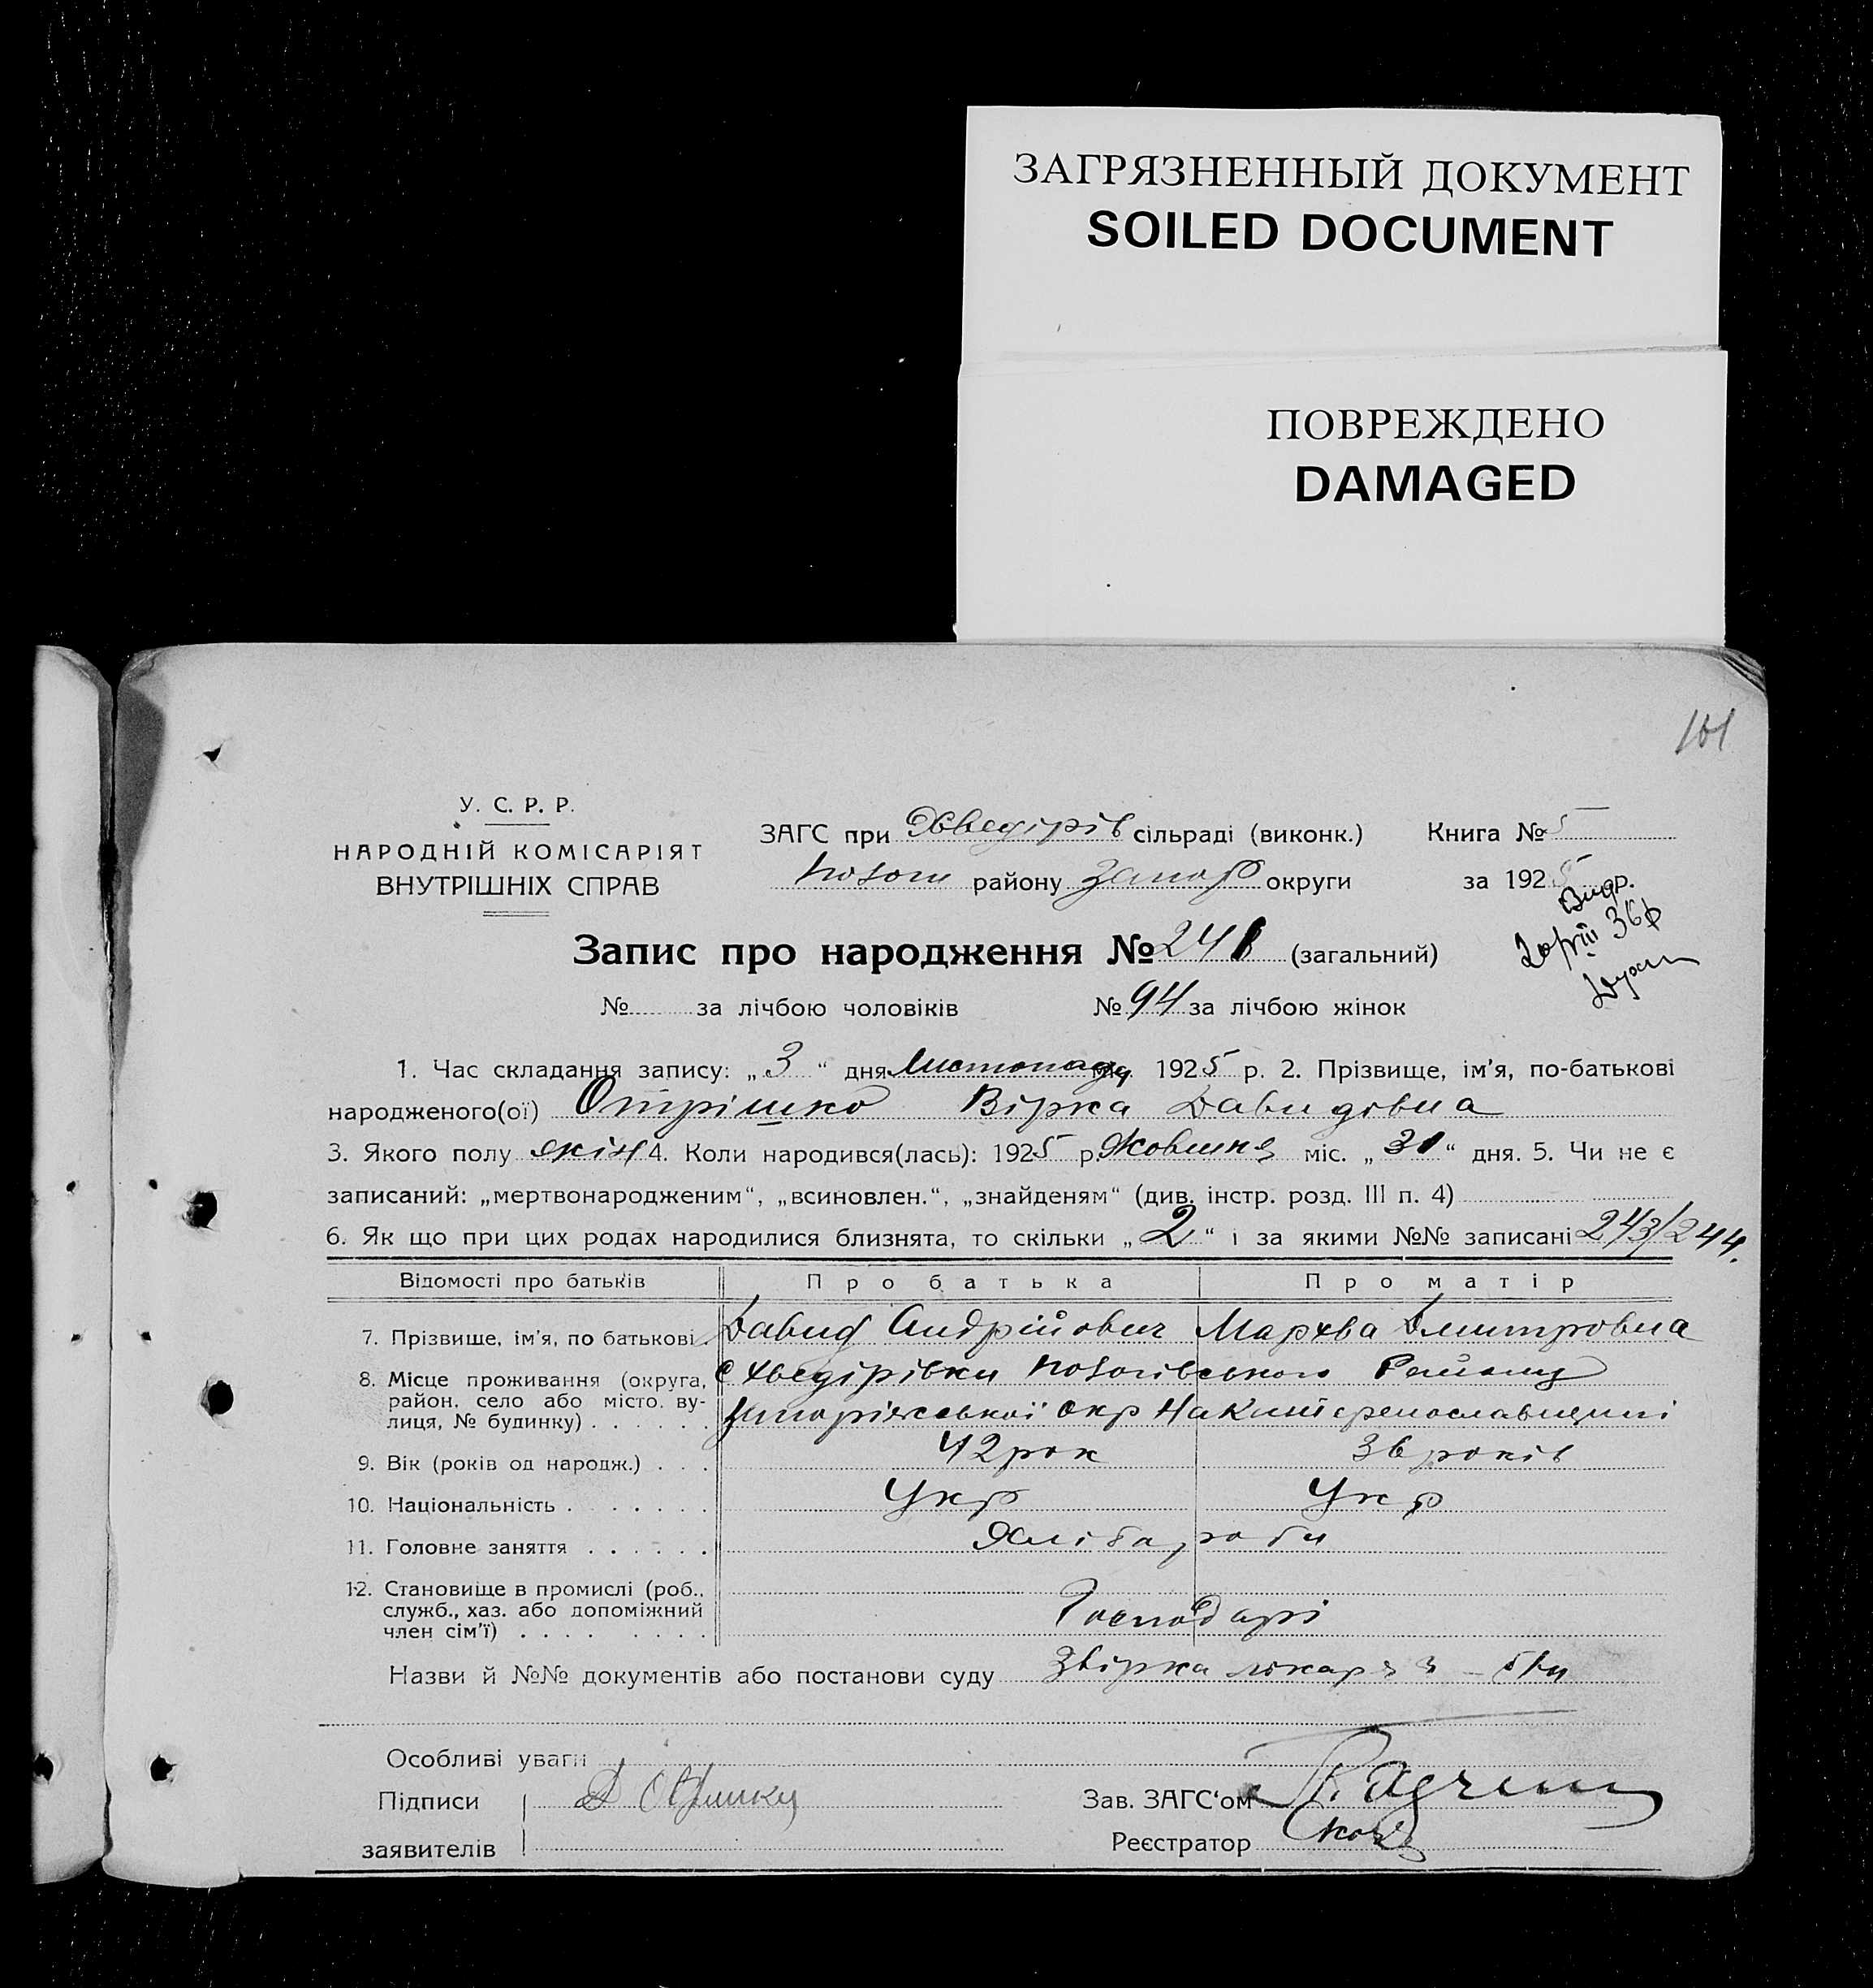 ЗАГРЯЗНЕННЫЙ ДОКУМЕНТ
SOILED DOCUMENT
ПОВРЕЖДЕНО
DAMAGED
101
У. С. Р. Р.
НАРОДНІЙ КОМІСАРІЯТ
ВНУТРІШНІХ СПРАВ
ЗАГС при Хведірів сільраді (виконк.) Книга № 5
району Запор округи за 1925 р.
Запис про народження № 241 (загальний)
№ за лічбою чоловіків № 94 за лічбою жінок
1. Час складання запису: „ 3 “ дня Листопада міс. 1925 р. 2. Прізвище, ім'я, по-батькові
народженого(ої) Отрішко Вірка Давидівна
3. Якого полу жін 4. Коли народився(лась): 1925 р. Жовтня міс. „ 31 “ дня. 5. Чи не є
записаний: „мертвонародженим“, „всиновлен.“, „знайденям“ (див. інстр. розд. III п. 4)
6. Як що при цих родах народилися близнята, то скільки „ 2 “ і за якими №№ записані 243/244.
Відомості про батьків Про батька Про матір
7. Прізвище, ім'я, по батькові Давид Андрійович Мархва Дмитровна
8. Місце проживання (округа, район, село або місто, вулиця, № будинку) с Хведірівки Району
Запоріжської окр На Катеренославщині
9. Вік (років од народж.) 42 рок 36 років
10. Національність Укр Укр
11. Головне заняття Хлібароби
12. Становище в промислі (роб., служб., хаз. або допоміжний член сім'ї) Господарі
Назви й №№ документів або постанови суду Звірка лікаря
Особливі уваги
Підписи заявителів Д Отришку
Зав. ЗАГС‘ом
Реєстратор